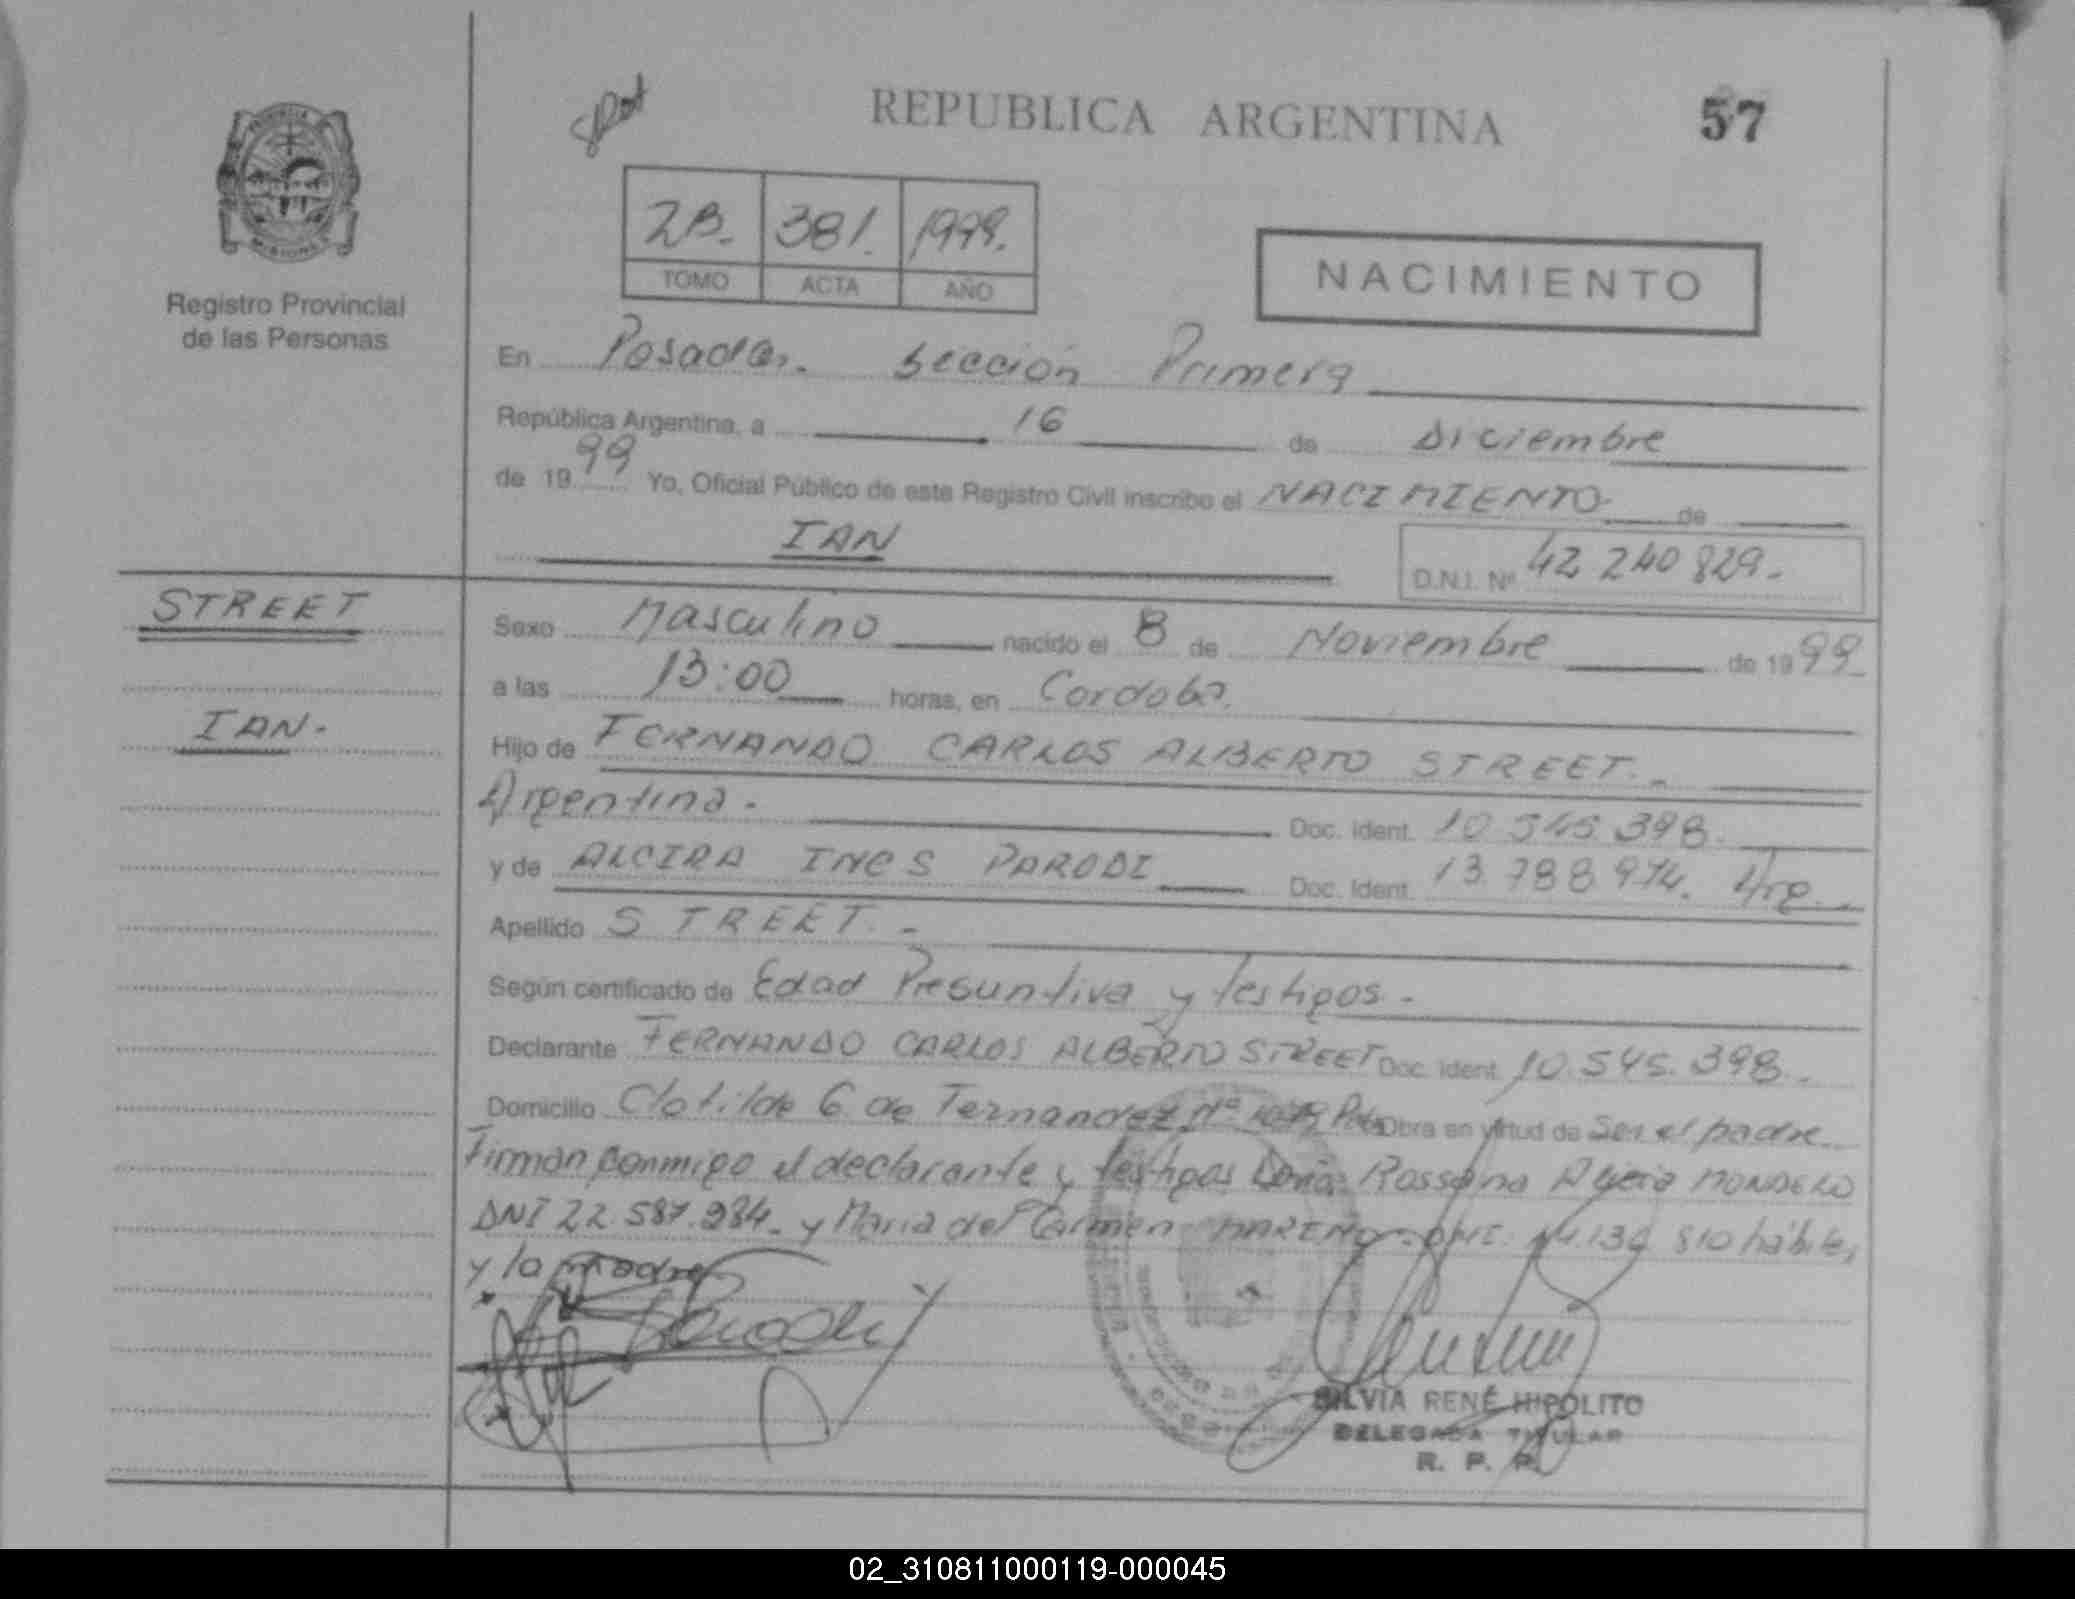 REPUBLICA ARGENTINA
57
2B. 381. 1999.
TOMO ACTA AÑO
NACIMIENTO
MISIONES
Registro Provincial
de las Personas
En Posadas. Sección Primera
República Argentina, a 16 de Diciembre
de 1999 Yo, Oficial Público de este Registro Civil inscribo el NACIMIENTO de
IAN
D.N.I. Nº 42 240 829.
STREET
IAN.
Sexo Masculino nacido el 8 de Noviembre de 1999.
a las 13:00 horas, en Cordoba.
Hijo de FERNANDO CARLOS ALBERTO STREET.
Argentina. Doc. Ident. 10.545.398.
y de ALCIRA INES PARODI Doc. Ident. 13.788.974. Arg.
Apellido STREET.-
Según certificado de Edad Presuntiva y testigos.
Declarante FERNANDO CARLOS ALBERTO STREET Doc. Ident. 10.545.398.
Domicilio Clotilde G. de Fernandez Nº Obra en virtud de Ser el padre
Firman conmigo el declarante y testigos Doña Rossana Alicia MONDELO
DNI 22.587.984. y Maria del Carmen 810 hábiles,
y la madre
SILVIA RENÉ HIPOLITO
DELEGADA TITULAR
R. P. P.
02_310811000119-000045